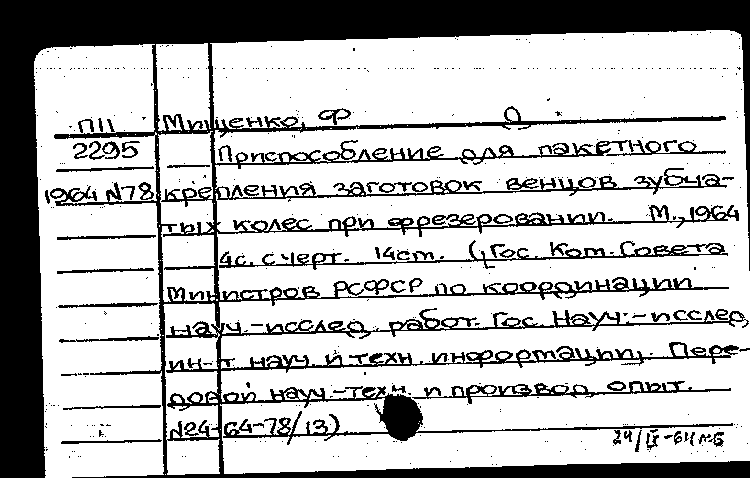 П11 Мищенко, Ф
2295 Приспособление для пакетного
1964 N78 крепления заготовок венцов зубча-
тых колес при фрезеровании. М., 1964
4с. с черт. 14см. (Гос. Ком. Совета
Министров РСФСР по координации
науч.-исслед. работ. Гос. Науч.-исслед.
ин-т науч. и техн. информации. Пере-
довой науч.-техн. и производ. опыт.
№4-64-78/13).
24/IX-64